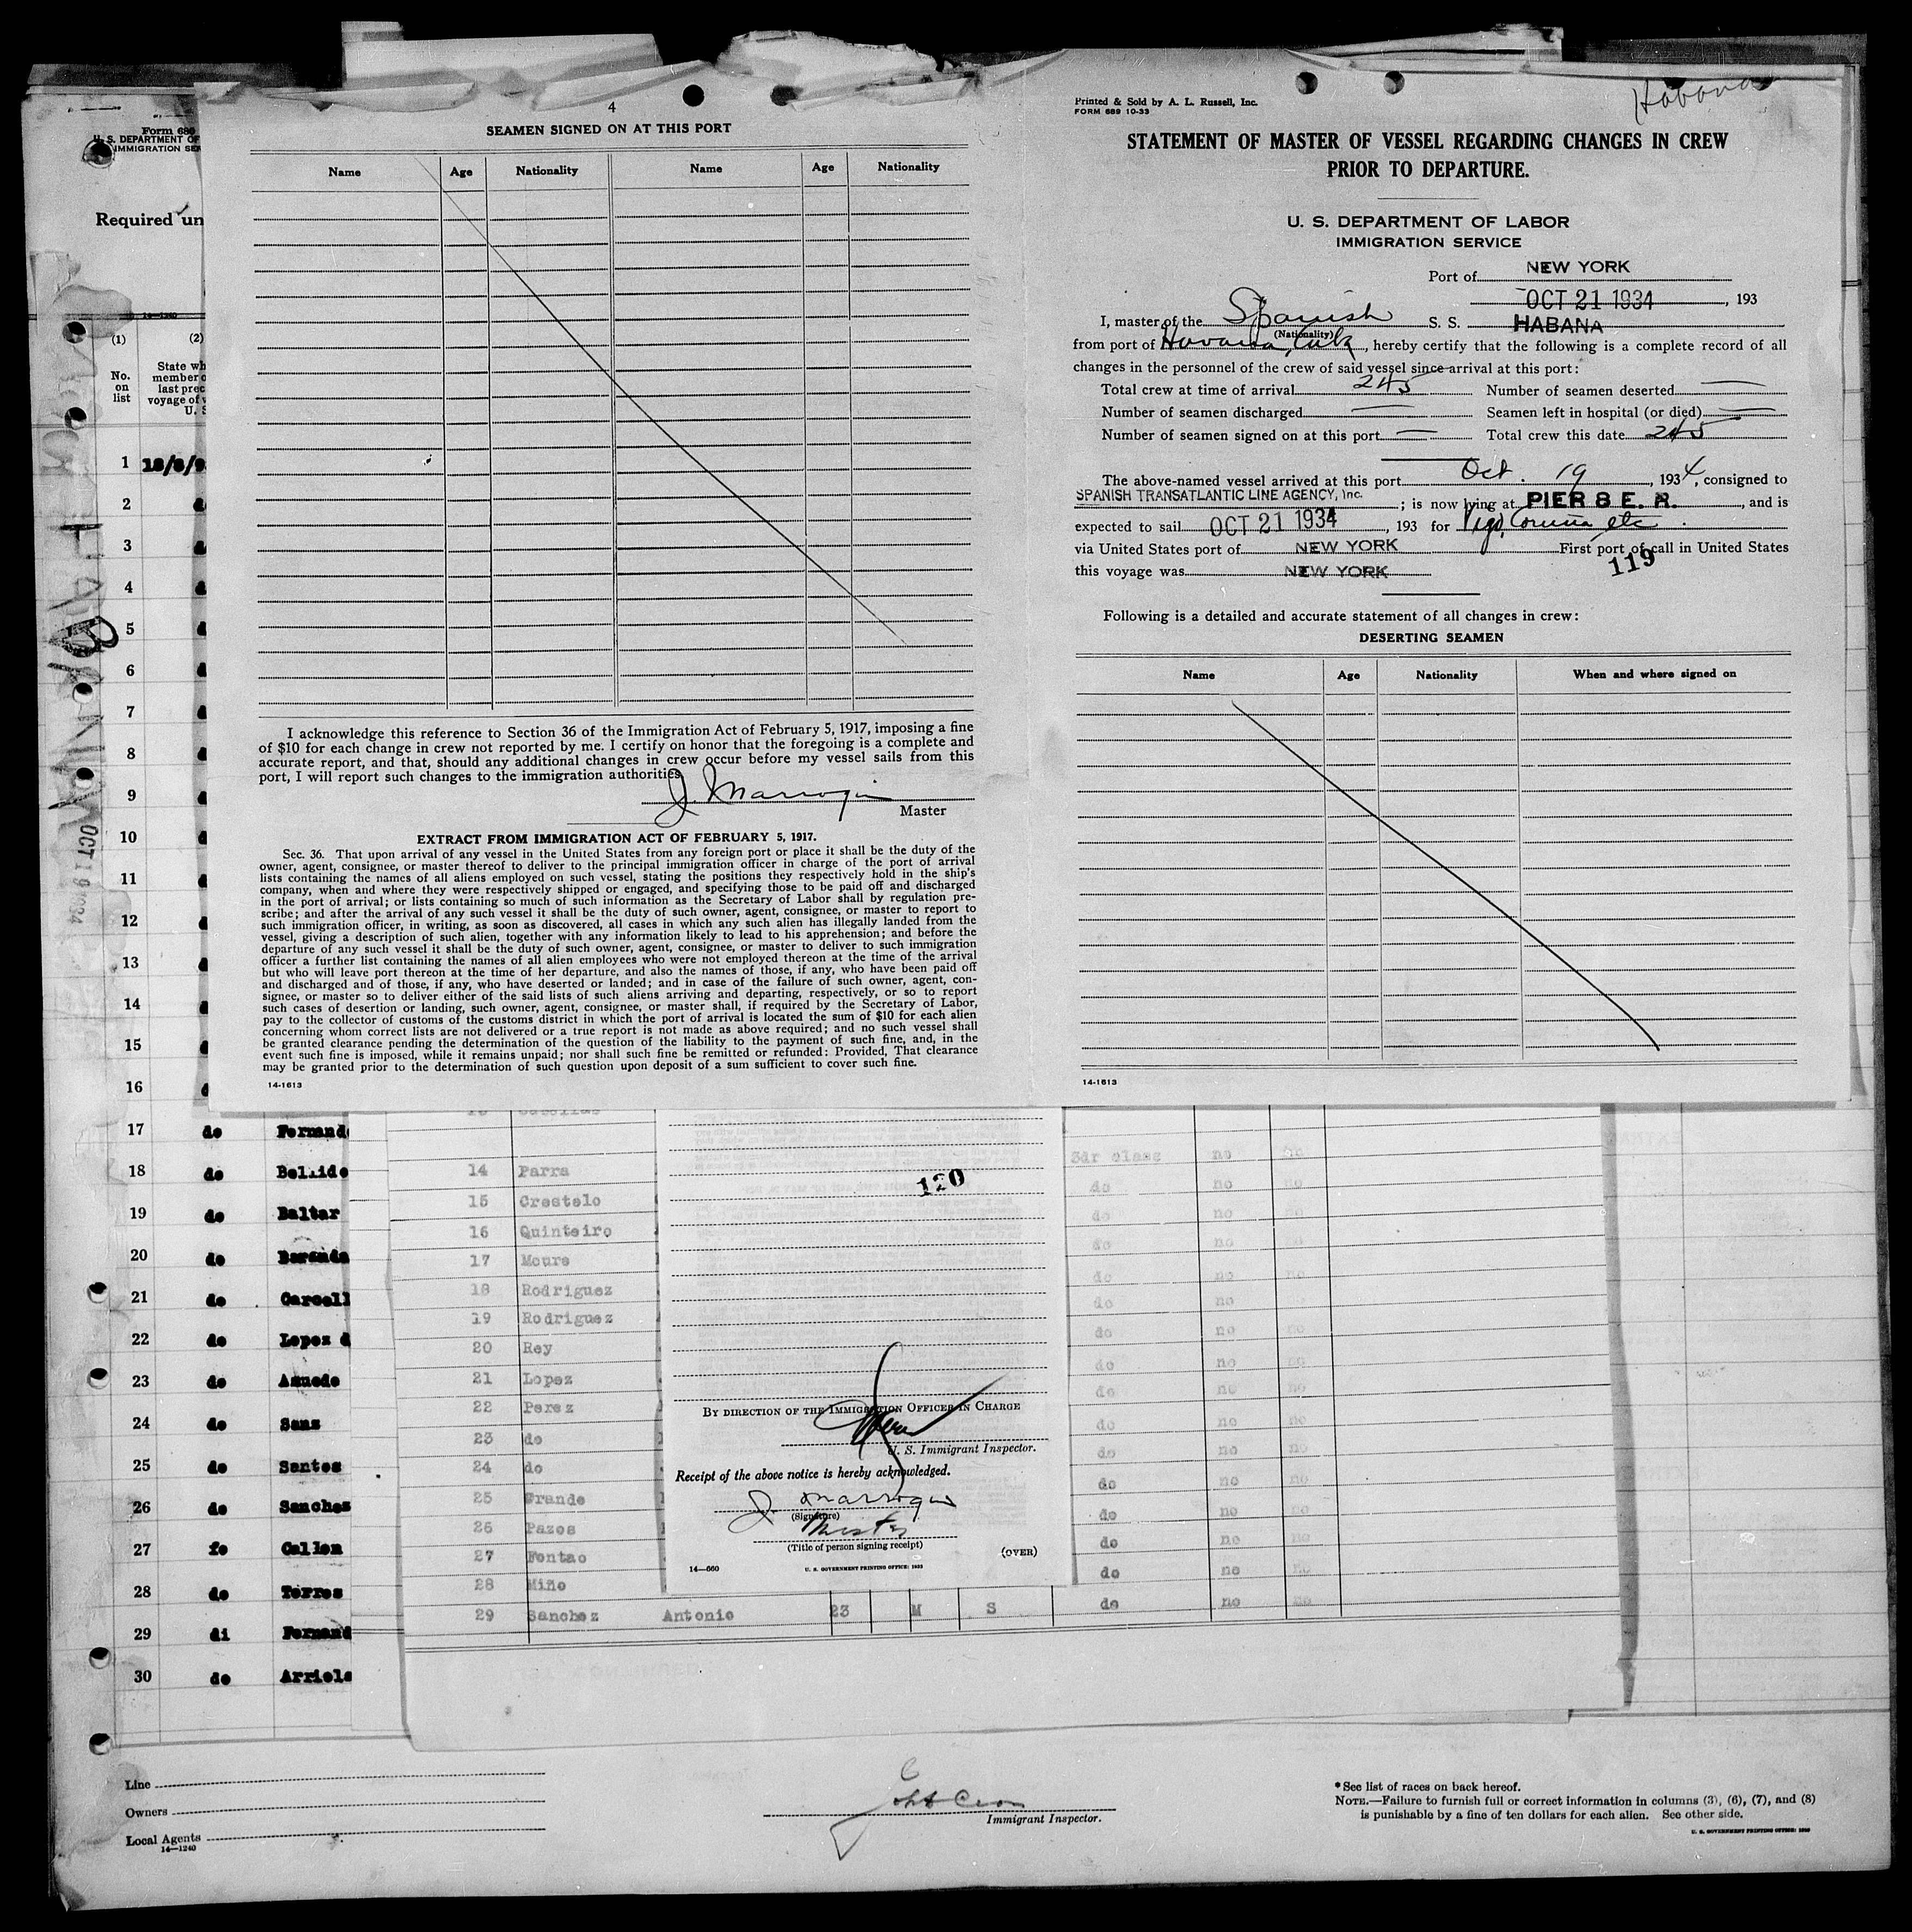 4
SEAMEN SIGNED ON AT THIS PORT
Name Age Nationality Name Age Nationality
I acknowledge this reference to Section 36 of the Immigration Act of February 5, 1917, imposing a fine
of $10 for each change in crew not reported by me. I certify on honor that the foregoing is a complete and
accurate report, and that, should any additional changes in crew occur before my vessel sails from this
port, I will report such changes to the immigration authorities.
J. Marroquin
Master
EXTRACT FROM IMMIGRATION ACT OF FEBRUARY 5, 1917.
Sec. 36. That upon arrival of any vessel in the United States from any foreign port or place it shall be the duty of the
owner, agent, consignee, or master thereof to deliver to the principal immigration officer in charge of the port of arrival
lists containing the names of all aliens employed on such vessel, stating the positions they respectively hold in the ship's
company, when and where they were respectively shipped or engaged, and specifying those to be paid off and discharged
in the port of arrival; or lists containing so much of such information as the Secretary of Labor shall by regulation pre-
scribe; and after the arrival of any such vessel it shall be the duty of such owner, agent, consignee, or master to report to
such immigration officer, in writing, as soon as discovered, all cases in which any such alien has illegally landed from the
vessel, giving a description of such alien, together with any information likely to lead to his apprehension; and before the
departure of any such vessel it shall be the duty of such owner, agent, consignee, or master to deliver to such immigration
officer a further list containing the names of all alien employees who were not employed thereon at the time of the arrival
but who will leave port thereon at the time of her departure, and also the names of those, if any, who have been paid off
and discharged and of those, if any, who have deserted or landed; and in case of the failure of such owner, agent, con-
signee, or master so to deliver either of the said lists of such aliens arriving and departing, respectively, or so to report
such cases of desertion or landing, such owner, agent, consignee, or master shall, if required by the Secretary of Labor,
pay to the collector of customs of the customs district in which the port of arrival is located the sum of $10 for each alien
concerning whom correct lists are not delivered or a true report is not made as above required; and no such vessel shall
be granted clearance pending the determination of the question of the liability to the payment of such fine, and, in the
event such fine is imposed, while it remains unpaid; nor shall such fine be remitted or refunded: Provided, That clearance
may be granted prior to the determination of such question upon deposit of a sum sufficient to cover such fine.
14-1613
Habana
Printed & Sold by A. L. Russell, Inc.
FORM 689 10-33
STATEMENT OF MASTER OF VESSEL REGARDING CHANGES IN CREW
PRIOR TO DEPARTURE.
U. S. DEPARTMENT OF LABOR
IMMIGRATION SERVICE
Port of NEW YORK
OCT 21 1934, 193
I, master of the Spanish S. S. HABANA
(Nationality)
from port of Havana, Cuba, hereby certify that the following is a complete record of all
changes in the personnel of the crew of said vessel since arrival at this port:
Total crew at time of arrival 245 Number of seamen deserted —
Number of seamen discharged — Seamen left in hospital (or died) —
Number of seamen signed on at this port — Total crew this date 245
The above-named vessel arrived at this port Oct. 19, 1934, consigned to
SPANISH TRANSATLANTIC LINE AGENCY, Inc.; is now lying at PIER 8 E. R., and is
expected to sail OCT 21 1934, 193 for Vigo, Coruña etc.
via United States port of NEW YORK First port of call in United States
this voyage was NEW YORK
119
Following is a detailed and accurate statement of all changes in crew:
DESERTING SEAMEN
Name Age Nationality When and where signed on
14-1613
Form 689
U. S. DEPARTMENT OF
IMMIGRATION SER
Required un
14-1240
(1) (2)
No. on list
State wh
member o
last prec
voyage of v
U. S
HABANA
OCT 19 1934
1
2
3
4
5
6
7
8
9
10
11
12
13
14
15
16
17 do Fernand
18 do Bellido
19 do Baltar
20 do
21 do Carcell
22 do Lopez d
23 do
24 do Sanz
25 do Santos
26 do Sanchez
27 fo Callen
28 do Torres
29 di Fernand
30 do Arriola
3dr class no no
14 Parra do no no
15 Crestelo do no no
16 Quinteiro do no no
17 Moure do no no
18 Rodriguez do no
19 Rodriguez do no no
20 Rey do no no
21 Lopez do no no
22 Perez do no no
23 do do no no
24 do do no no
25 Grande do no no
26 Pazos do no no
27 Fontao do no no
28 Miño do no no
29 Sanchez Antonio 23 M S do no no
120
BY DIRECTION OF THE IMMIGRATION OFFICER IN CHARGE
U. S. Immigrant Inspector.
Receipt of the above notice is hereby acknowledged.
J. Marroquin
(Signature)
Master
(Title of person signing receipt)
(OVER)
14—660 U. S. GOVERNMENT PRINTING OFFICE: 1933
Line
Owners
Local Agents
14—1240
Immigrant Inspector.
*See list of races on back hereof.
NOTE.—Failure to furnish full or correct information in columns (3), (6), (7), and (8)
is punishable by a fine of ten dollars for each alien. See other side.
U. S. GOVERNMENT PRINTING OFFICE: